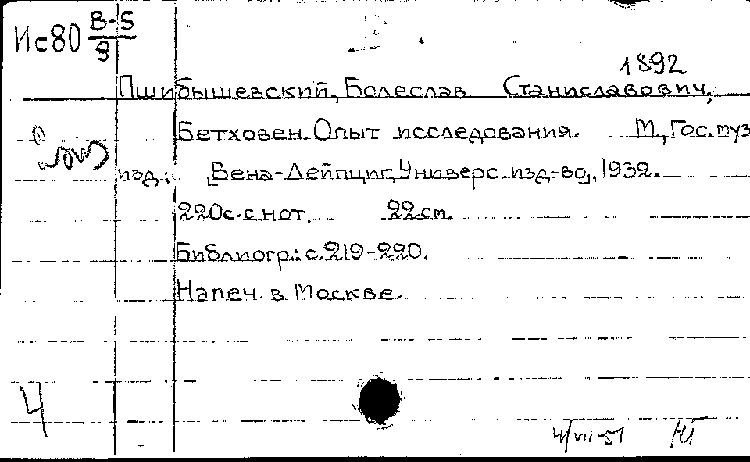 Ис80 В-5
9
1892
Пшибышевский, Болеслав Станиславович,
Бетховен. Опыт исследования. М., Гос. муз
изд., Вена-Лейпциг, Универс. изд-во, 1932.
220с. с нот. 22 см.
Библиогр.: с. 219-220.
Напеч. в Москве.
4
4/VII-51